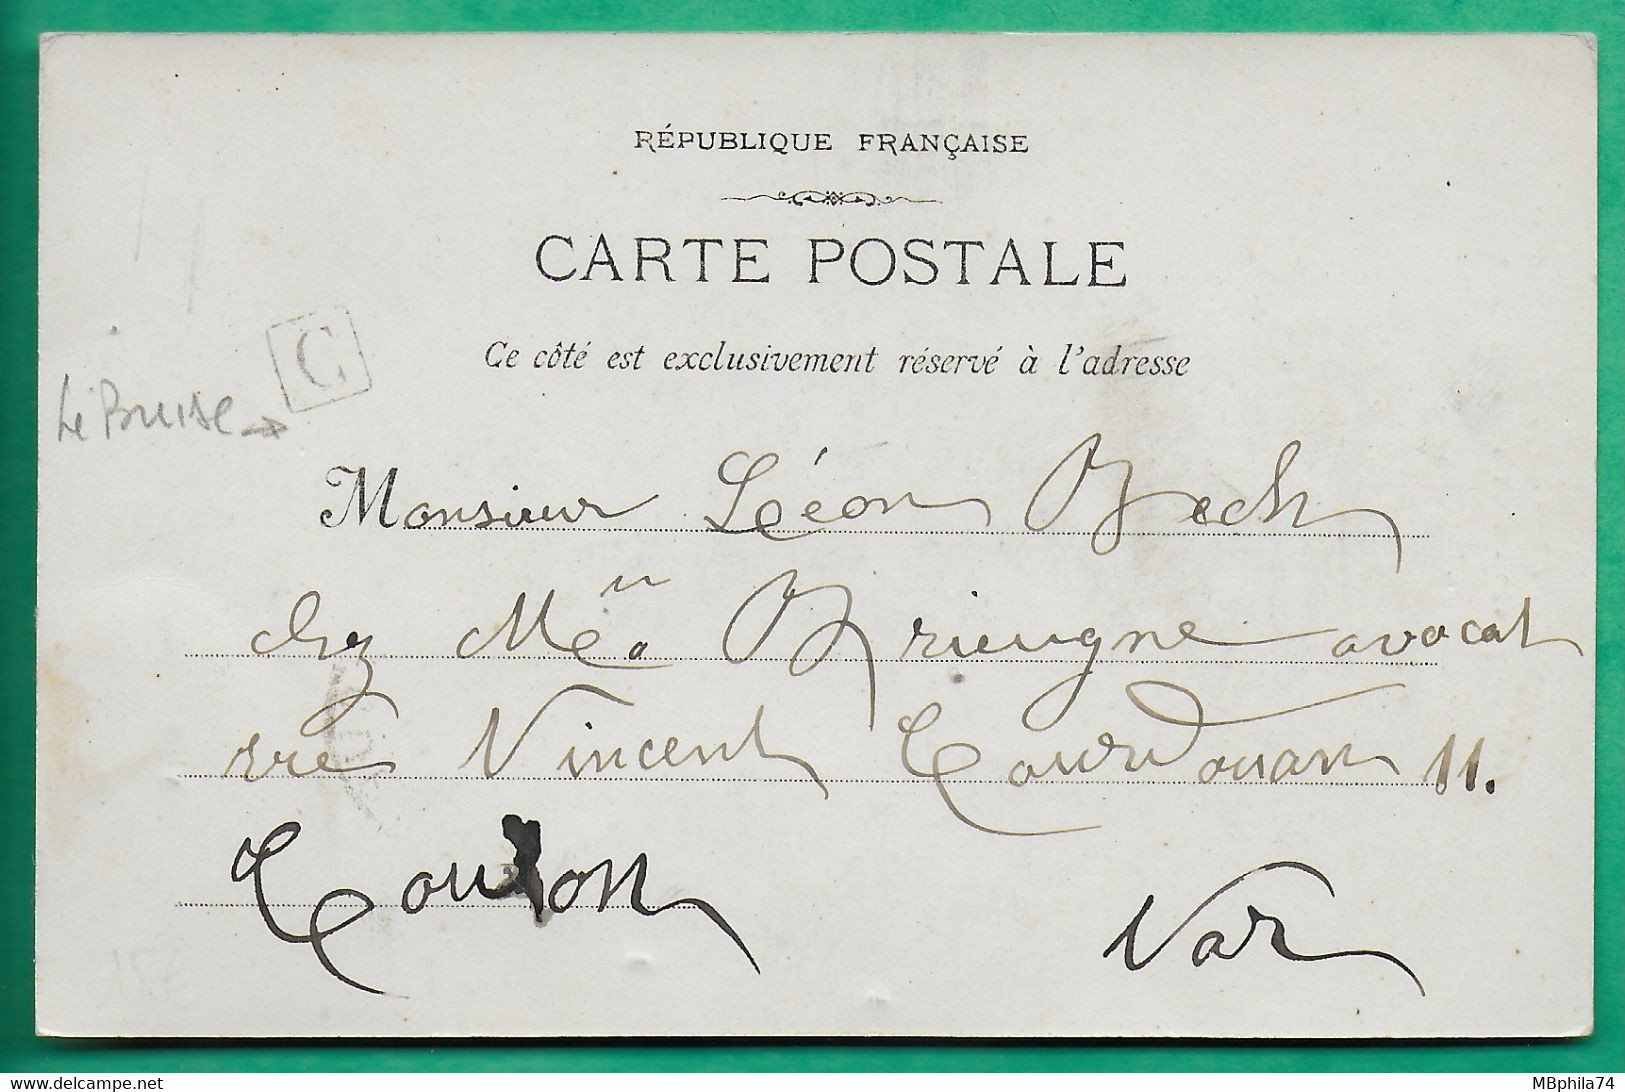 RÉPUBLIQUE FRANÇAISE
CARTE POSTALE
Ce côté est exclusivement réservé à l'adresse
G
Le Brusc →
Monsieur Léon Bech
chez Me Brieugne avocat
rue Vincent Courdouan 11.
Toulon
Var
15€
delcampe.net
MBphila74